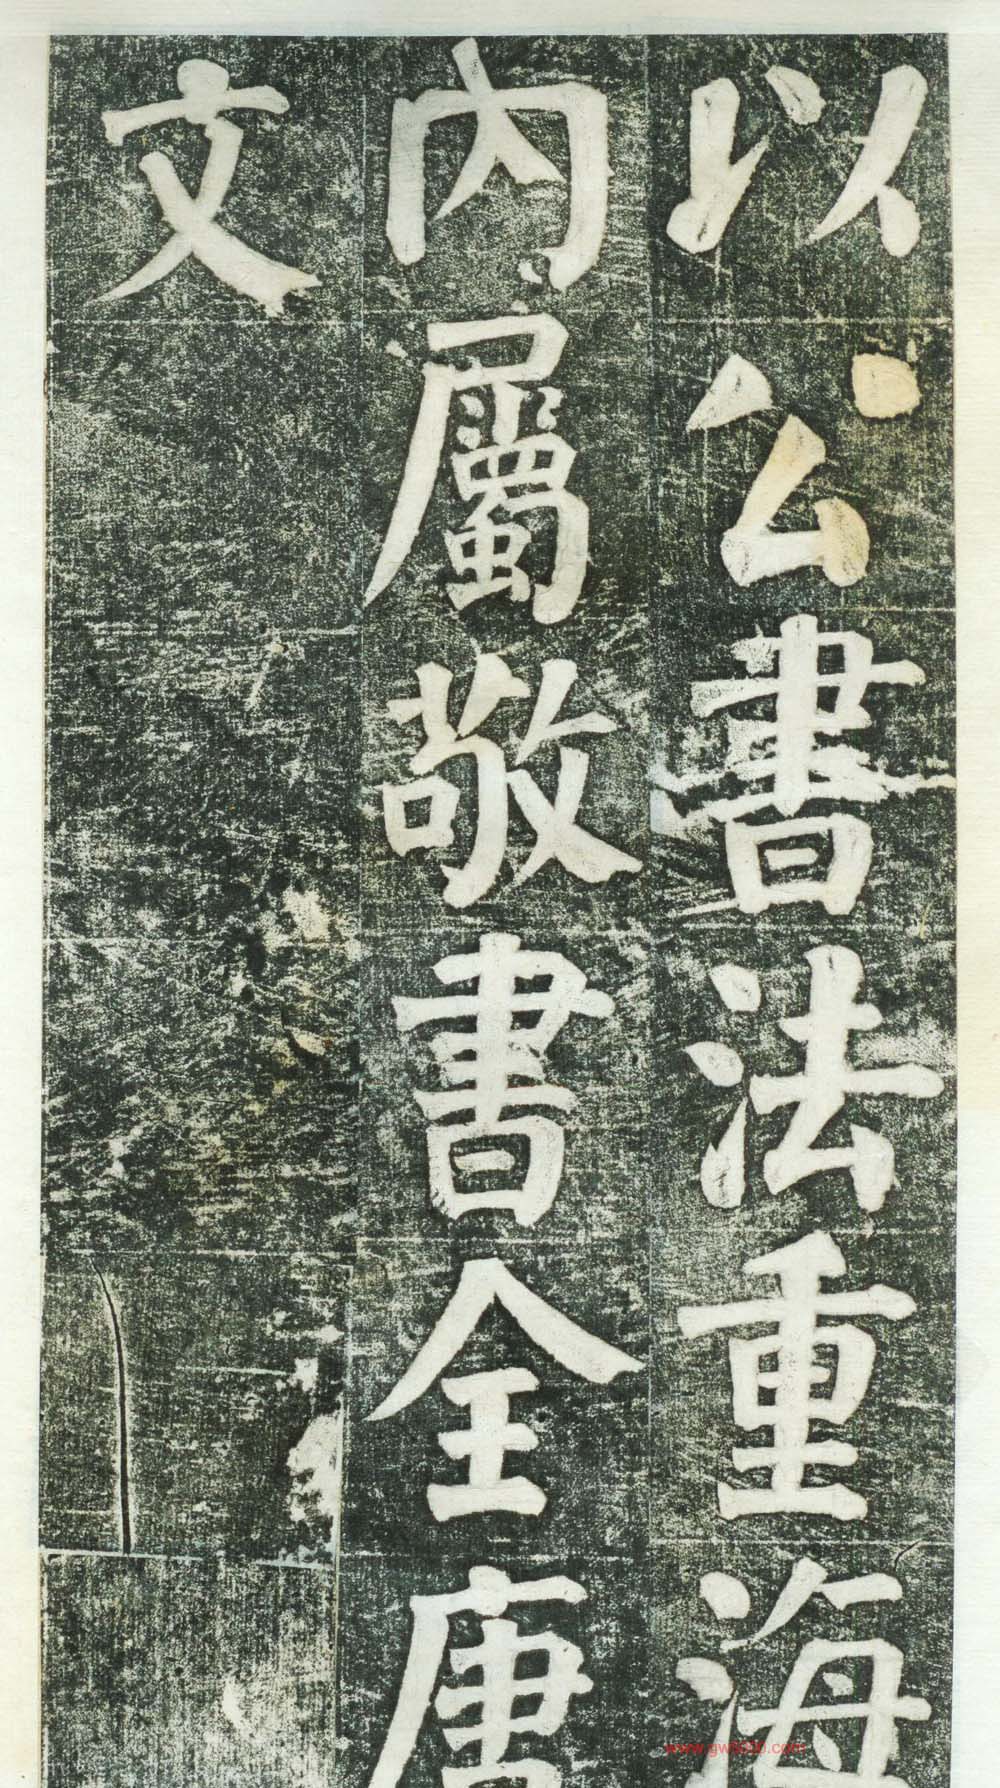 以公書法重海
內屬敬書全唐
文
www.gw5000.com